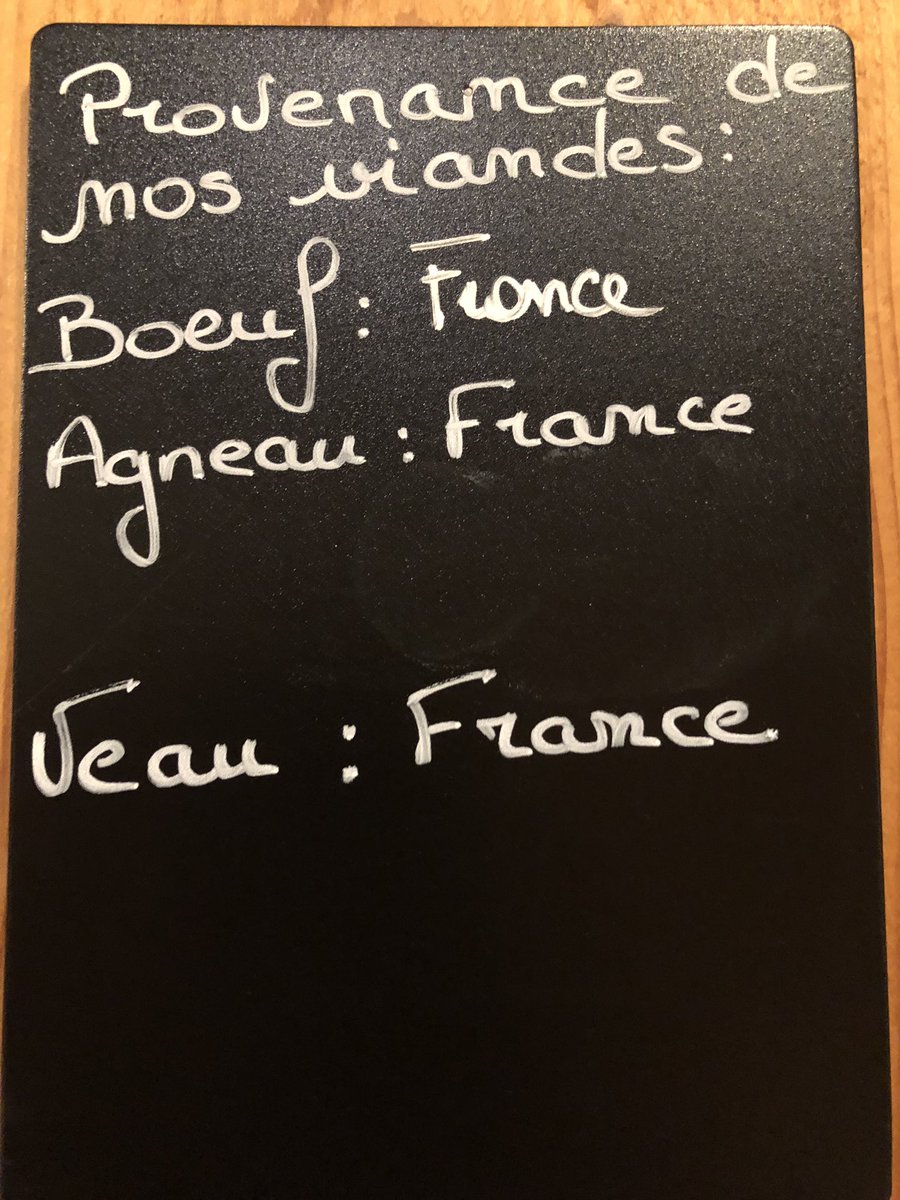 Provenance de
nos viandes:
Boeuf: France
Agneau: France
Veau: France